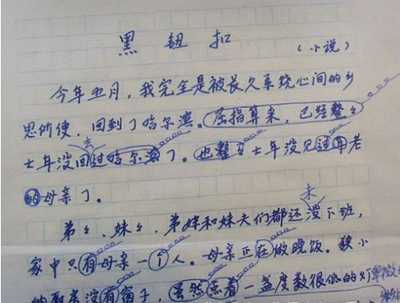 黑 钮 扣
（小说）
今年五月，我完全是被长久系绕心间的乡
思所使，回到了哈尔滨。屈指算来，已经整々
七年没回过哈尔滨了。也整々七年没见过年老
的母亲了。
弟々、妹々、弟妹和妹夫们都还没下班，
未
家中只有母亲一个人。母亲正在做晚饭。狭小
的厨房没有窗子，虽然亮着一盏度数很低的灯